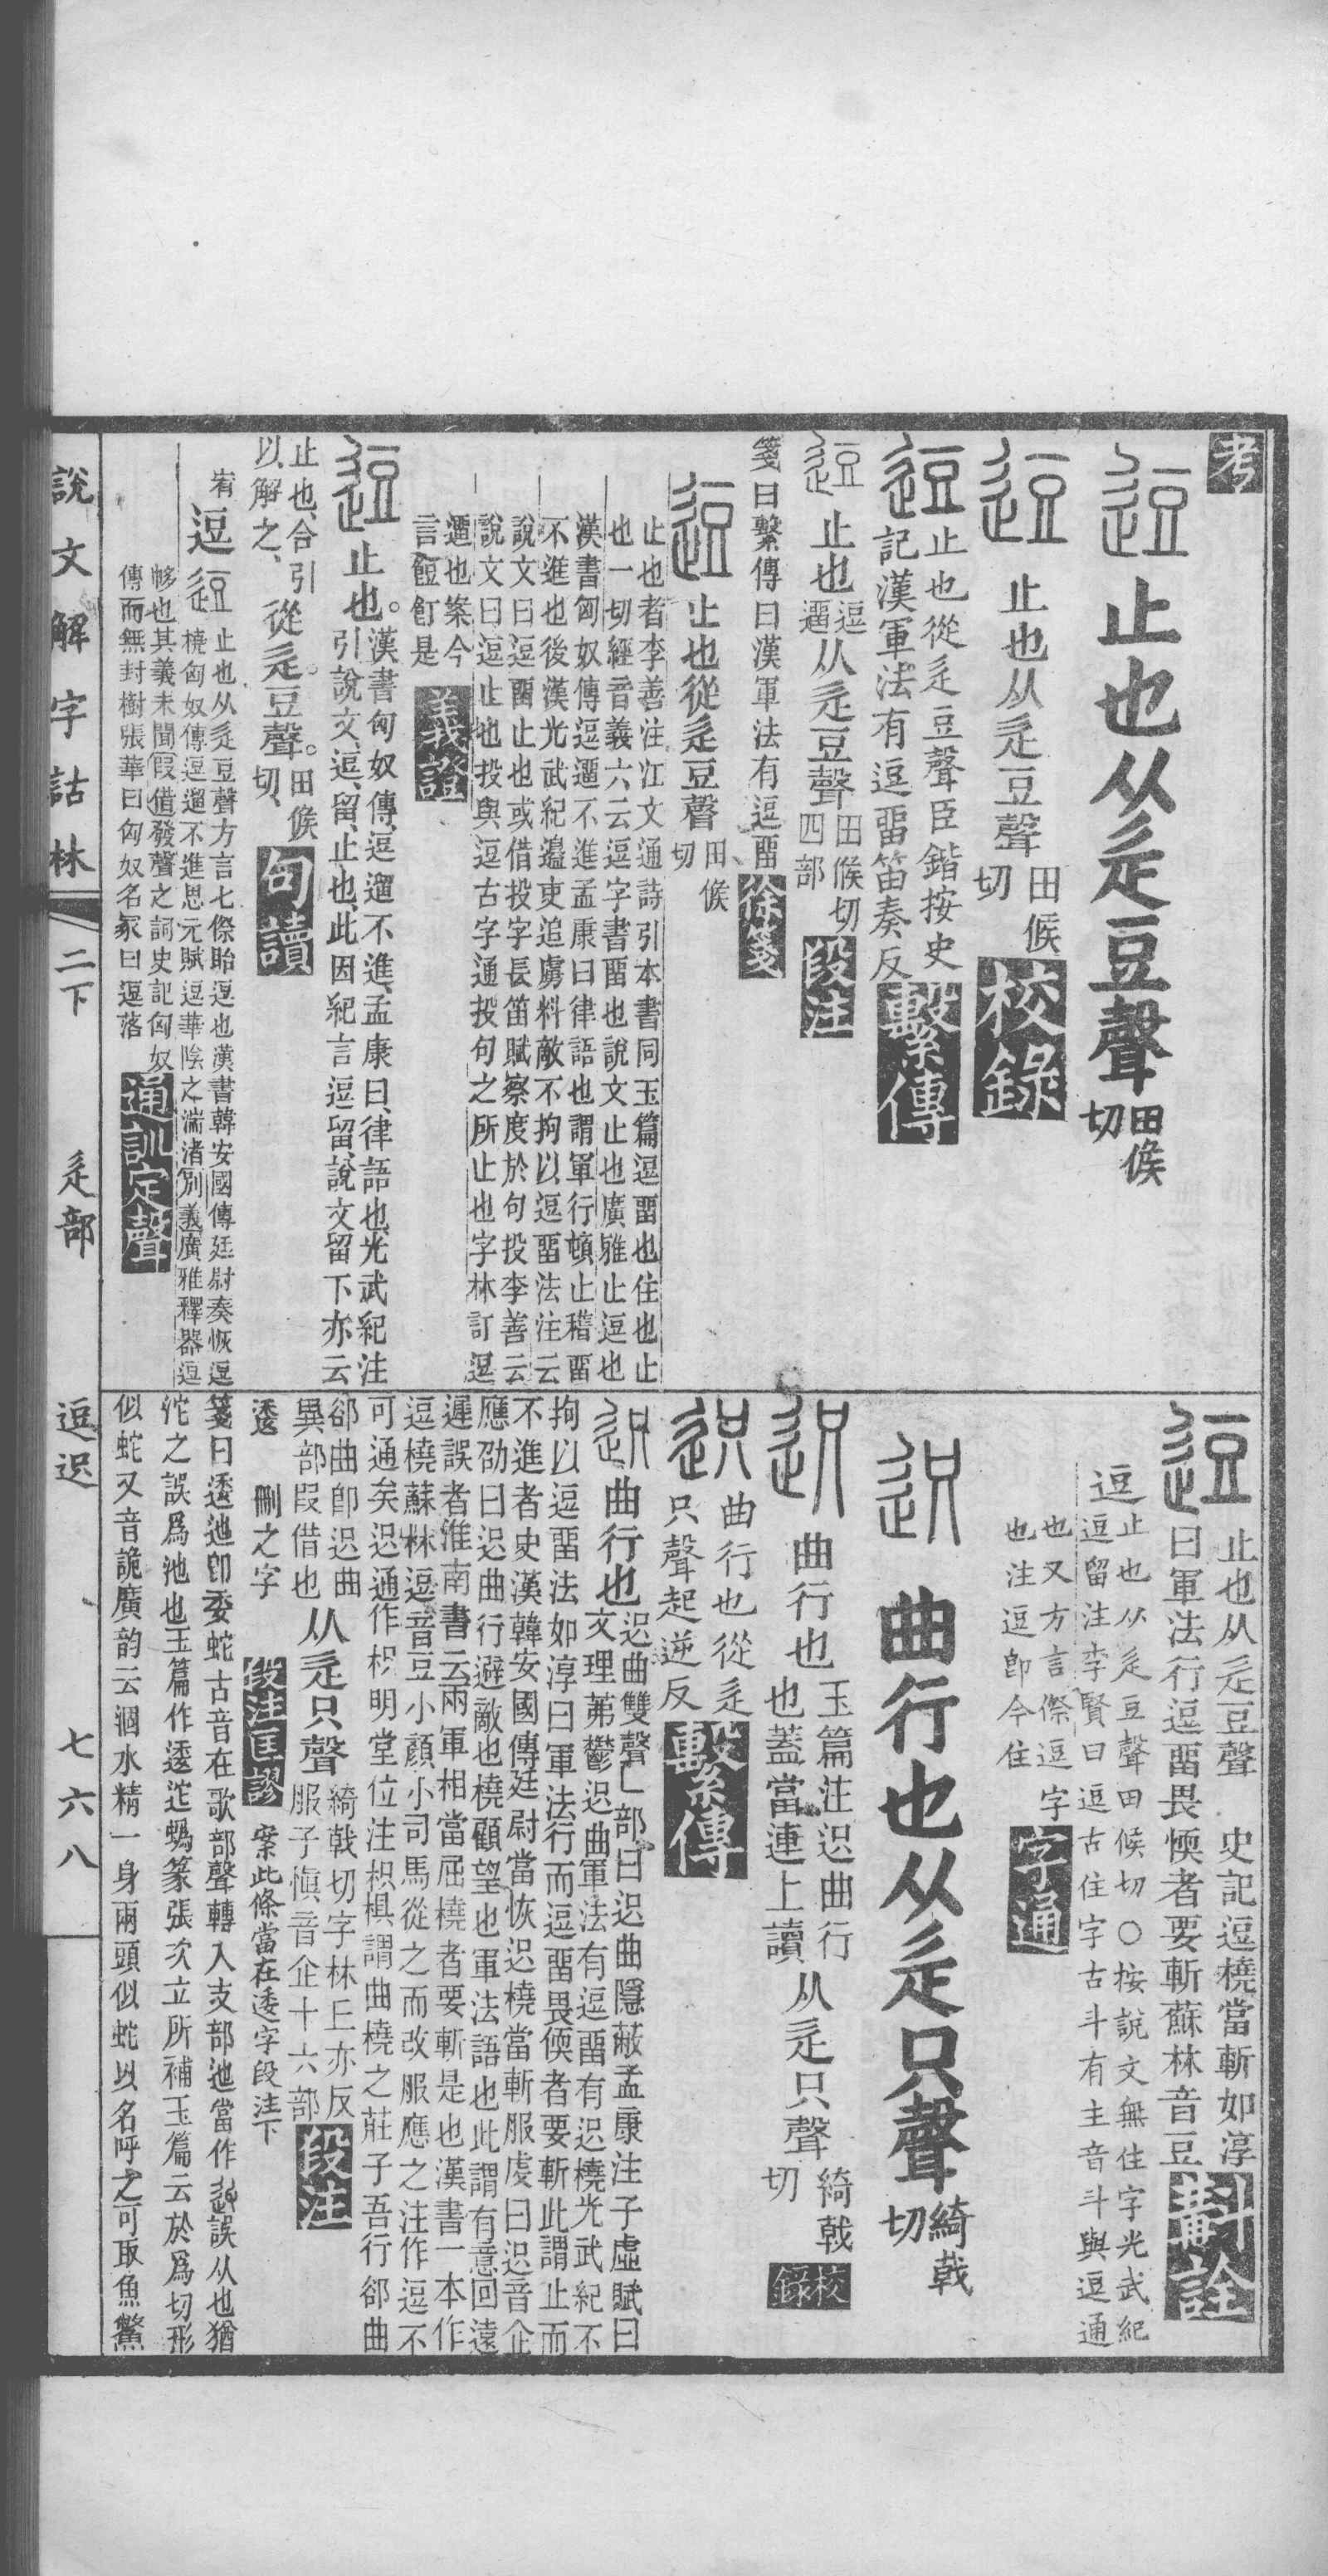 考
逗 止也从辵豆聲 田候切
逗 止也从辵豆聲 田候切 校錄
逗 止也從辵豆聲臣鍇按史
記漢軍法有逗畱笛奏反 繫傳
逗 止也 逗遛 从辵豆聲 田候切四部 段注
箋曰繫傳曰漢軍法有逗畱 徐箋
逗 止也從辵豆聲 田候切
止也者李善注江文通詩引本書同玉篇逗畱也住也止
也一切經音義六云逗字書畱也說文止也廣雅止逗也
漢書匈奴傳逗遛不進孟康曰律語也謂軍行頓止稽畱
不進也後漢光武紀邊吏追虜料敵不拘以逗畱法注云
說文曰逗畱止也或借投字長笛賦察度於句投李善云
說文曰逗止也投與逗古字通投句之所止也字林訂逗
遛也案今
言飣是 義證
逗 止也。漢書匈奴傳、逗遛不進、孟康曰、律語也、光武紀注
引說文、逗、留、止也、此因紀言逗留、說文留下亦云
止也、合引
以解之、 從辵。豆聲。田候切、 句讀
逗 止也从辵豆聲方言七傺眙逗也漢書韓安國傳廷尉奏恢逗
橈匈奴傳逗遛不進思元賦逗華陰之湍渚別義廣雅釋器逗
也其義未聞假借發聲之詞史記匈奴
傳而無封樹張華曰匈奴名冢曰逗落 通訓定聲
逗 止也从辵豆聲 史記逗橈當斬如淳
曰軍法行逗畱畏愞者要斬蘇林音豆 斠詮
逗 止也从辵豆聲田候切○按說文無住字光武紀
逗留注李賢曰逗古住字古斗有主音斗與逗通
也又方言傺逗字
也注逗卽今住 字通
迟 曲行也从辵只聲 綺戟切
迟 曲行也 玉篇注迟曲行
也蓋當連上讀 从辵只聲 綺戟切 校錄
迟 曲行也從辵
只聲起逆反 繫傳
迟 曲行也 迟曲雙聲乚部曰迟曲隱蔽孟康注子虛賦曰
文理茀鬱迟曲軍法有逗畱有迟橈光武紀不
拘以逗畱法如淳曰軍法行而逗畱畏愞者要斬此謂止而
不進者史漢韓安國傳廷尉當恢迟橈當斬服虔曰迟音企
應劭曰迟曲行避敵也橈顧望也軍法語也此謂有意回遠
遲誤者淮南書云兩軍相當屈橈者要斬是也漢書一本作
逗橈蘇林逗音豆小顏小司馬從之而改服應之注作逗不
可通矣迟通作枳明堂位注枳椇謂曲橈之莊子吾行郤曲
郤曲卽迟曲
異部叚借也 从辵只聲 綺戟切字林丘亦反
服子愼音企十六部 段注
逶 刪之字 段注匡謬 案此條當在逶字段注下
箋曰逶迆卽委蛇古音在歌部聲轉入支部迆當作 誤从也猶
沱之誤爲池也玉篇作逶迱蟡篆張次立所補玉篇云於爲切形
似蛇又音詭廣韵云涸水精一身兩頭似蛇以名呼之可取魚鱉
說文解字詁林
二下
辵部
逗迟
七六八